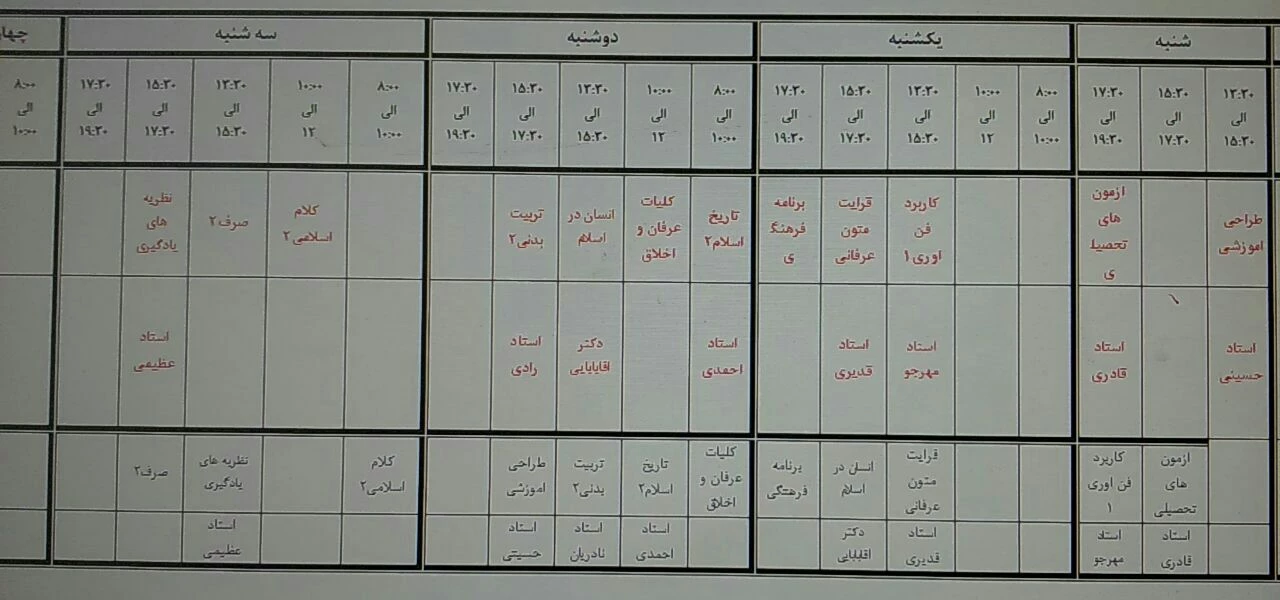 شنبه
یکشنبه
دوشنبه
سه شنبه
چهار
۱۳:۳۰ الی ۱۵:۳۰
۱۵:۳۰ الی ۱۷:۳۰
۱۷:۳۰ الی ۱۹:۳۰
۸:۰۰ الی ۱۰:۰۰
۱۰:۰۰ الی ۱۲
۱۳:۳۰ الی ۱۵:۳۰
۱۵:۳۰ الی ۱۷:۳۰
۱۷:۳۰ الی ۱۹:۳۰
۸:۰۰ الی ۱۰:۰۰
۱۰:۰۰ الی ۱۲
۱۳:۳۰ الی ۱۵:۳۰
۱۵:۳۰ الی ۱۷:۳۰
۱۷:۳۰ الی ۱۹:۳۰
۸:۰۰ الی ۱۰:۰۰
۱۰:۰۰ الی ۱۲
۱۳:۳۰ الی ۱۵:۳۰
۱۵:۳۰ الی ۱۷:۳۰
۱۷:۳۰ الی ۱۹:۳۰
۸:۰۰ الی ۱۰:۰۰
طراحی اموزشی
ازمون های تحصیلی
کاربرد فن اوری۱
قرایت متون عرفانی
برنامه فرهنگی
تاریخ اسلام۲
کلیات عرفان و اخلاق
انسان در اسلام
تربیت بدنی۲
کلام اسلامی۲
صرف۲
نظریه های یادگیری
استاد حسینی
استاد قادری
استاد مهرجو
استاد قدیری
استاد احمدی
دکتر اقابابایی
استاد رادی
استاد عظیمی
ازمون های تحصیلی
کاربرد فن اوری ۱
قرایت متون عرفانی
انسان در اسلام
برنامه فرهنگی
کلیات عرفان و اخلاق
تاریخ اسلام۲
تربیت بدنی۲
طراحی اموزشی
کلام اسلامی۲
نظریه های یادگیری
صرف۲
استاد قادری
استاد مهرجو
استاد قدیری
دکتر اقابابایی
استاد احمدی
استاد نادریان
استاد حسینی
استاد عظیمی